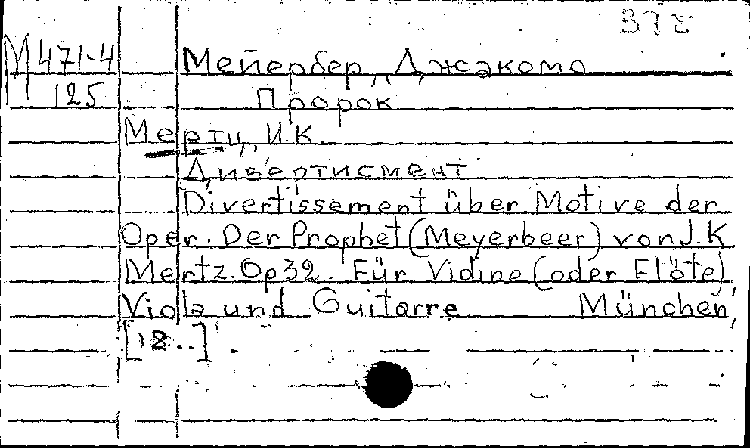 М471-4 Мейербер, Джакомо
125 Пророк
Мерти, И.К.
Дивертисмент
Divertissement über Motive der
Oper. Der Prophet (Meyerbeer) von J.K
Mertz. Op 32. Für Vidine (oder Flöte),
Viola und Guitarre München,
[18..].